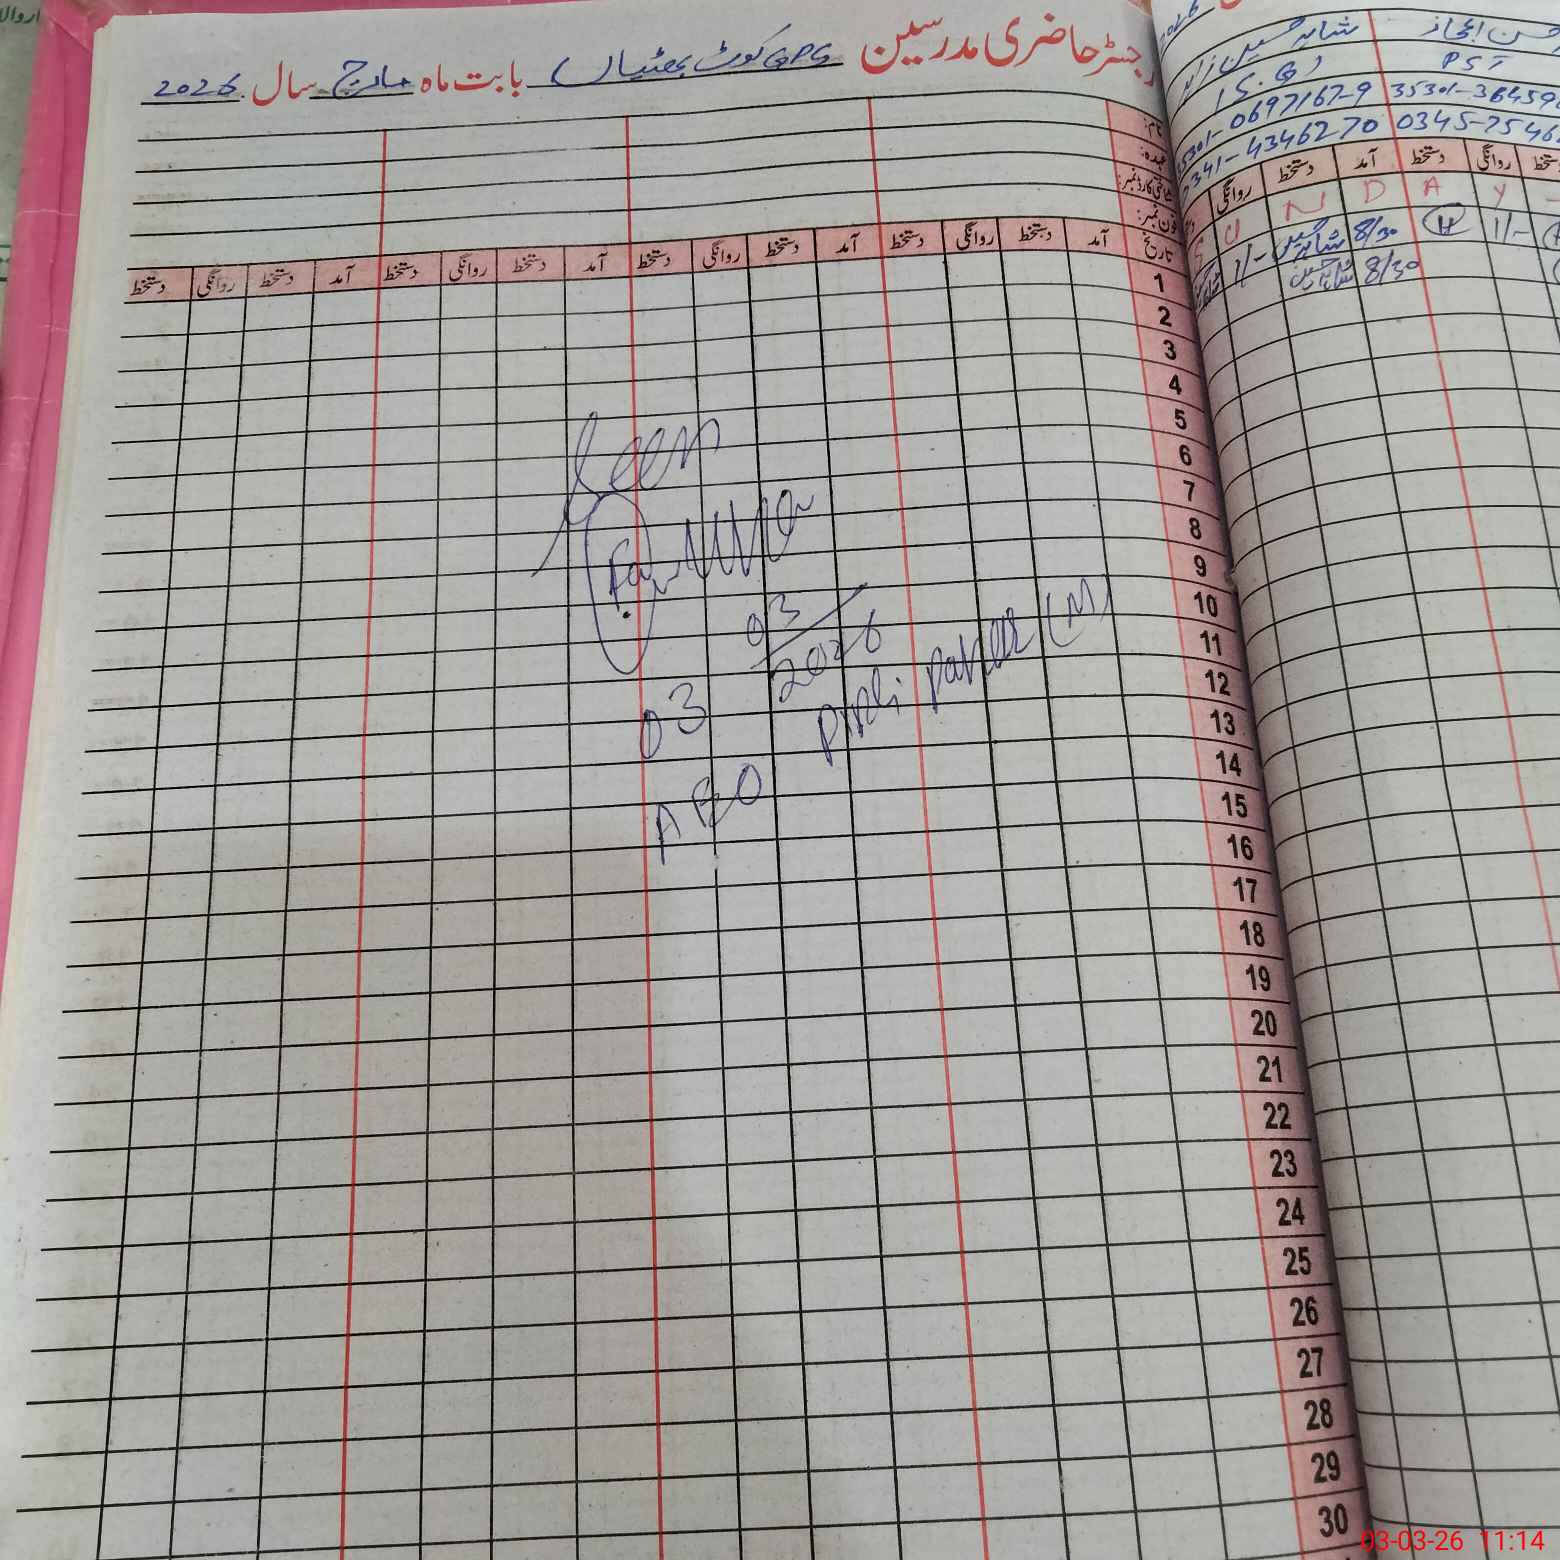 رجسٹر حاضری مدرسین GPS کوٹ بھٹیاں بابت ماہ مارچ سال 2026
نام:
عہدہ:
شناختی کارڈ نمبر:
فون نمبر:
تاریخ آمد دستخط روانگی دستخط آمد دستخط روانگی دستخط آمد دستخط روانگی دستخط آمد دستخط روانگی دستخط
1
2
3
4
5
6
7
8
9
10
11
12
13
14
15
16
17
18
19
20
21
22
23
24
25
26
27
28
29
30
Seen
03
03/2026
AEO Pipli (M)
شاہد حسین
PST
0697167-9 35301-36459
0341-4346270 0345-7546
روانگی دستخط آمد دستخط روانگی
S U N D A Y
1/- 8/30 H 1/-
8/30
03-03-26 11:14